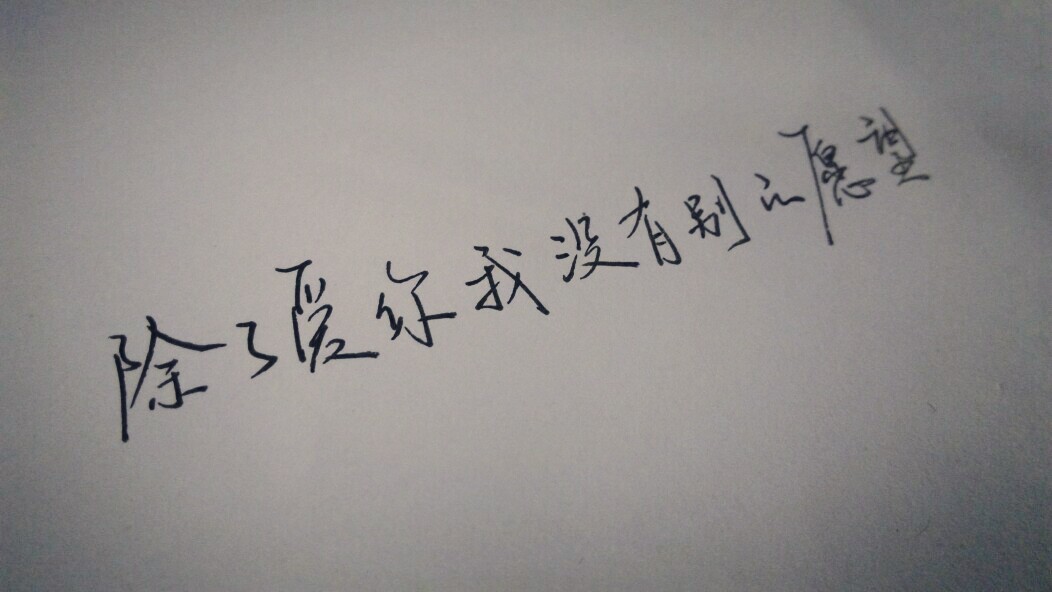 除了爱你我没有别的愿望